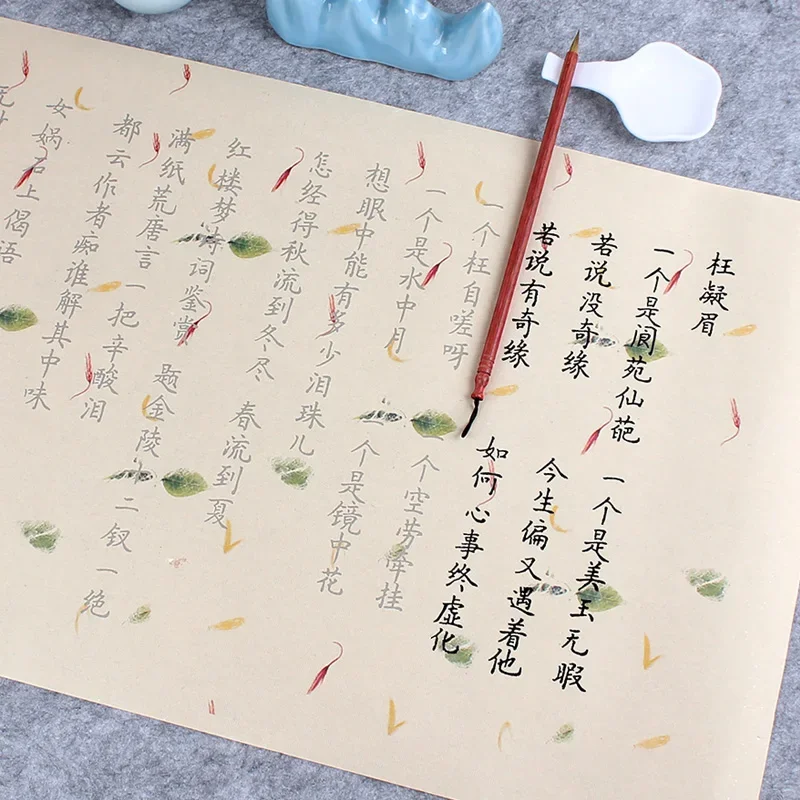 枉凝眉
一个是阆苑仙葩 一个是美玉无暇
若说没奇缘 今生偏又遇着他
若说有奇缘 如何心事终虚化
一个枉自嗟呀 一个空劳牵挂
一个是水中月 一个是镜中花
想眼中能有多少泪珠儿
怎经得秋流到冬尽 春流到夏
红楼梦诗词鉴赏 题金陵十二钗一绝
满纸荒唐言 一把辛酸泪
都云作者痴谁解其中味
女娲石上偈语